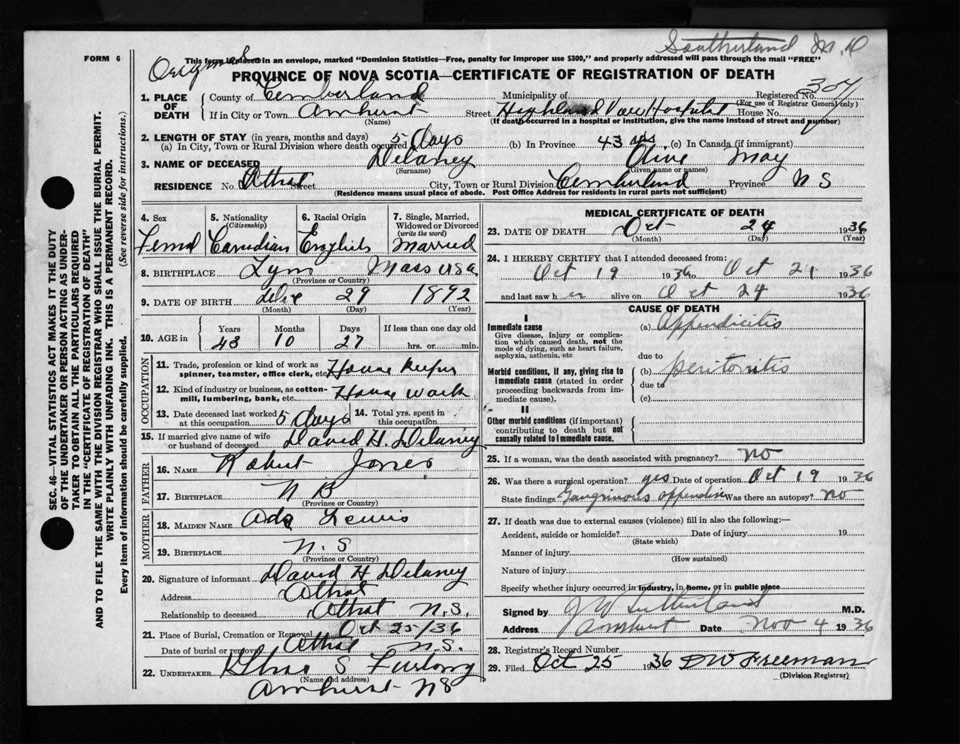 Southerland M.D
FORM 6
Original
This form if placed in an envelope, marked "Dominion Statistics—Free, penalty for improper use $300," and properly addressed will pass through the mail "FREE"
PROVINCE OF NOVA SCOTIA—CERTIFICATE OF REGISTRATION OF DEATH
1. PLACE OF DEATH
County of Cemberland Municipality of Registered No. 307
(For use of Registrar General only)
If in City or Town Amhurst Street Highland View Hospital House No.
(Name) (If death occurred in a hospital or institution, give the name instead of street and number)
2. LENGTH OF STAY (in years, months and days)
(a) In City, Town or Rural Division where death occurred 5 days (b) In Province 43 yrs (c) In Canada (if immigrant)
3. NAME OF DECEASED Delaney Olive May
(Surname) (Given name or names)
RESIDENCE No. Athol Street City, Town or Rural Division Cemberland Province N S
(Residence means usual place of abode. Post Office Address for residents in rural parts not sufficient)
4. Sex
Femal
5. Nationality
(Citizenship)
Canadian
6. Racial Origin
English
7. Single, Married, Widowed or Divorced
(write the word)
Married
8. BIRTHPLACE Lynn Mass USa
(Province or Country)
9. DATE OF BIRTH 29 1892
(Month) (Day) (Year)
10. AGE in
Years Months Days If less than one day old
43 10 27 hrs. or min.
OCCUPATION
11. Trade, profession or kind of work as spinner, teamster, office clerk, etc. House Keeper
12. Kind of industry or business, as cotton-mill, lumbering, bank, etc. House Work
13. Date deceased last worked at this occupation 5 days 14. Total yrs. spent in this occupation
15. If married give name of wife or husband of deceased David H. Delaney
FATHER
16. NAME Robert Jones
17. BIRTHPLACE N B
(Province or Country)
MOTHER
18. MAIDEN NAME Ada Lewis
19. BIRTHPLACE N. S
(Province or Country)
20. Signature of informant David H Delaney
Address Athol
Relationship to deceased Athol N.S.
21. Place of Burial, Cremation or Removal Oct 25/36
Date of burial or removal Athol N.S.
22. UNDERTAKER Chas S Furlong
(Name and address)
Amhurst NS
MEDICAL CERTIFICATE OF DEATH
23. DATE OF DEATH Oct 24 1936
(Month) (Day) (Year)
24. I HEREBY CERTIFY that I attended deceased from:
Oct 19 1936 to Oct 21 1936
and last saw her alive on Oct 24 1936
CAUSE OF DEATH
I
Immediate cause
Give disease, injury or complication which caused death, not the mode of dying, such as heart failure, asphyxia, asthenia, etc
(a) Appendicitis
due to
Morbid conditions, if any, giving rise to immediate cause (stated in order proceeding backwards from immediate cause).
(b) peritonitis
due to
(c)
II
Other morbid conditions (if important) contributing to death but not causally related to immediate cause.
25. If a woman, was the death associated with pregnancy? no
26. Was there a surgical operation? yes Date of operation Oct 19 1936
State findings Gangrinous appendise Was there an autopsy? no
27. If death was due to external causes (violence) fill in also the following:—
Accident, suicide or homicide? Date of injury 19
(State which)
Manner of injury
(How sustained)
Nature of injury
Specify whether injury occurred in industry, in home, or in public place
Signed by J W Sutherland M.D.
Address Amhurst Date Nov 4 1936
28. Registrar's Record Number
29. Filed Oct 25 1936 F W Freeman
(Division Registrar)
SEC. 46—VITAL STATISTICS ACT MAKES IT THE DUTY OF THE UNDERTAKER OR PERSON ACTING AS UNDERTAKER TO OBTAIN ALL THE PARTICULARS REQUIRED IN THE "CERTIFICATE OF REGISTRATION OF DEATH" AND TO FILE THE SAME WITH THE DIVISION REGISTRAR WHO SHALL ISSUE THE BURIAL PERMIT.
WRITE PLAINLY WITH UNFADING INK. THIS IS A PERMANENT RECORD.
Every item of information should be carefully supplied. (See reverse side for instructions.)